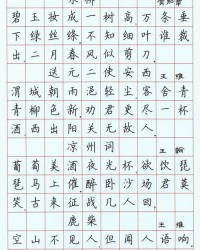 碧玉妆成一树高，万条垂
下绿丝绦。不知细叶谁裁
出，二月春风似剪刀。
送元二使安西 王维
渭城朝雨浥轻尘，客舍青
青柳色新。劝君更尽一杯
酒，西出阳关无故人。
凉州词 王翰
葡萄美酒夜光杯，欲饮琵
琶马上催。醉卧沙场君莫
笑，古来征战几人回。
鹿柴 王维
空山不见人，但闻人语响。